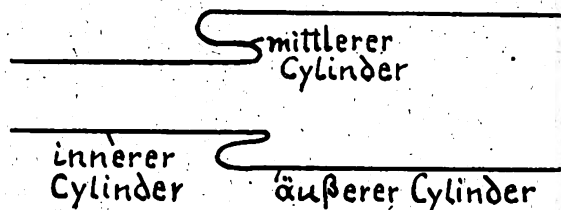 mittlerer
Cylinder
innerer
Cylinder
äußerer Cylinder